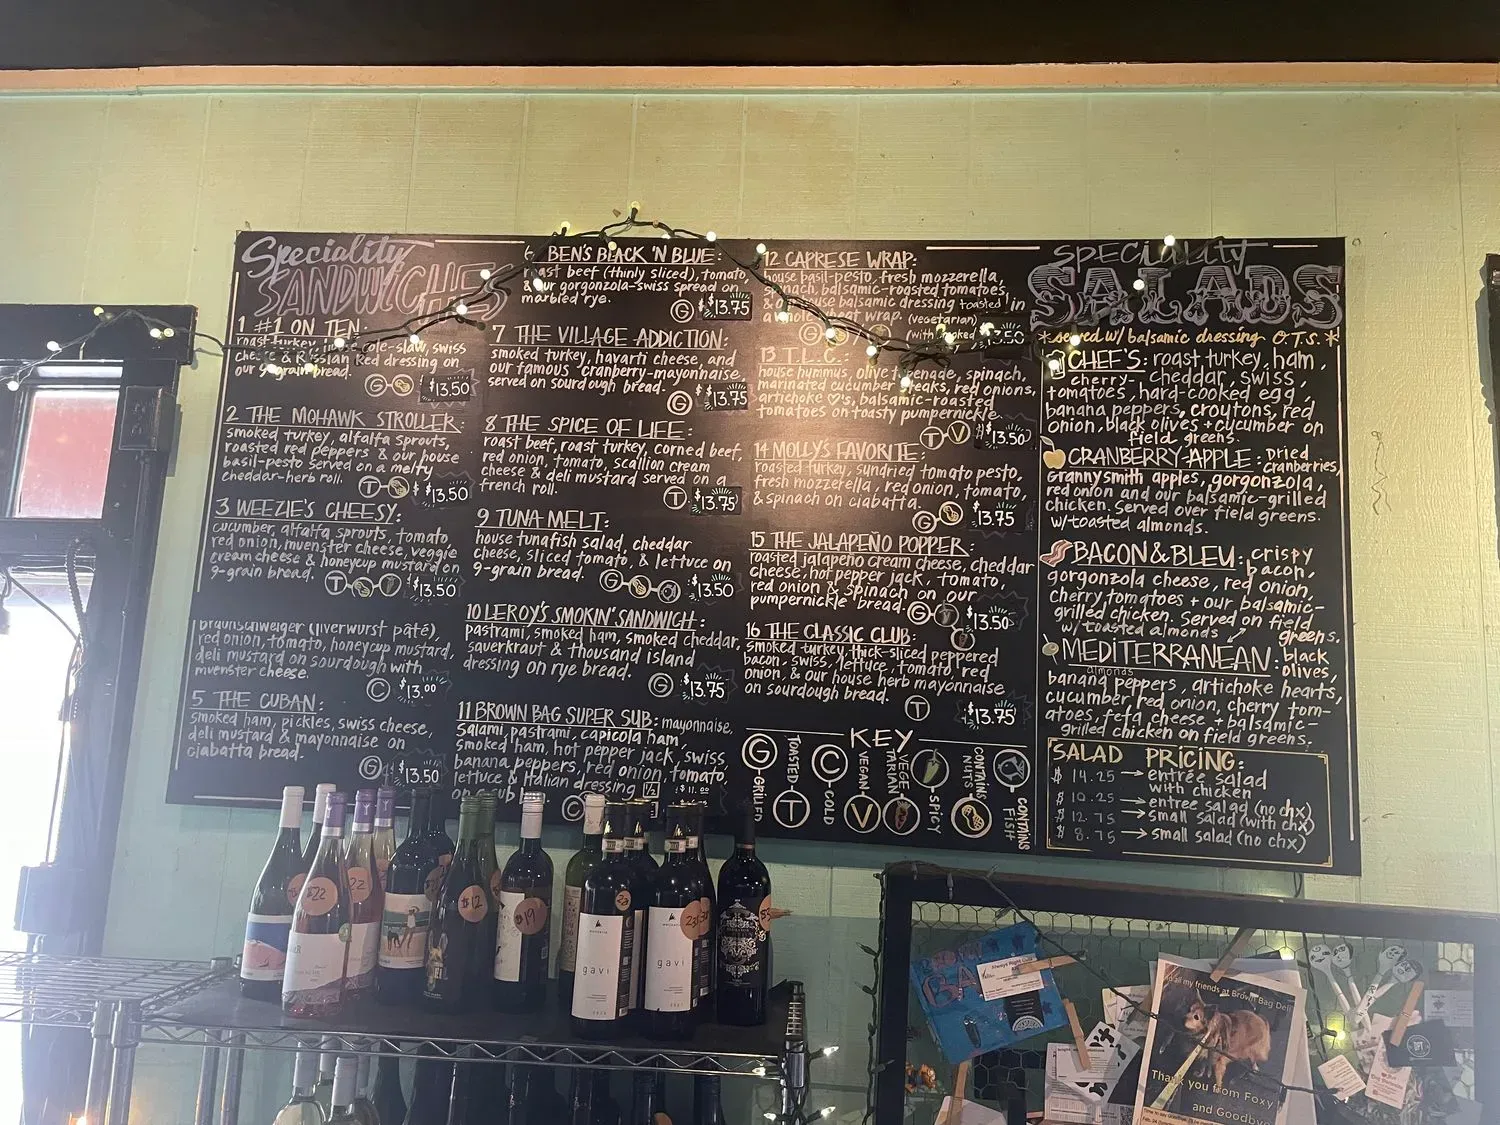 Speciality
SANDWICHES
1 #1 ON TEN:
roast turkey, house cole-slaw, swiss
cheese & Russian Red dressing on
our 9-grain bread.
G $13.50
2 THE MOHAWK STROLLER:
smoked turkey, alfalfa sprouts,
roasted red peppers & our house
basil-pesto served on a melty
cheddar-herb roll.
T $13.50
3 WEEZIE'S CHEESY:
cucumber, alfalfa sprouts, tomato
red onion, muenster cheese, veggie
cream cheese & honeycup mustard on
9-grain bread.
T $13.50
braunschweiger (liverwurst pâté),
red onion, tomato, honeycup mustard,
deli mustard on sourdough with
muenster cheese.
C $13.00
5 THE CUBAN:
smoked ham, pickles, swiss cheese,
deli mustard & mayonnaise on
ciabatta bread.
G $13.50
BEN'S BLACK 'N BLUE:
roast beef (thinly sliced), tomato
& our gorgonzola-swiss spread on
marbled rye.
G $13.75
7 THE VILLAGE ADDICTION:
smoked turkey, havarti cheese, and
our famous cranberry-mayonnaise
served on sourdough bread.
G $13.75
8 THE SPICE OF LIFE:
roast beef, roast turkey, corned beef,
red onion, tomato, scallion cream
cheese & deli mustard served on a
french roll.
T $13.75
9 TUNA MELT:
house tunafish salad, cheddar
cheese, sliced tomato, & lettuce on
9-grain bread.
G $13.50
10 LEROY'S SMOKIN' SANDWICH:
pastrami, smoked ham, smoked cheddar,
sauerkraut & thousand island
dressing on rye bread.
G $13.75
11 BROWN BAG SUPER SUB: mayonnaise,
salami, pastrami, capicola ham,
smoked ham, hot pepper jack, swiss,
banana peppers, red onion, tomato,
lettuce & italian dressing 1/2
on a sub
C
12 CAPRESE WRAP:
house basil-pesto, fresh mozzerella,
spinach, balsamic-roasted tomatoes,
& our house balsamic dressing toasted in
a whole wheat wrap. (vegetarian)
G 13.50
13 T.L.C.:
house hummus, olive tapenade, spinach,
marinated cucumber steaks, red onions,
artichoke ♡'s, balsamic-roasted
tomatoes on toasty pumpernickle.
T V $13.50
14 MOLLY'S FAVORITE:
roasted turkey, sundried tomato pesto,
fresh mozzerella, red onion, tomato,
& spinach on ciabatta.
G $13.75
15 THE JALAPEÑO POPPER:
roasted jalapeño cream cheese, cheddar
cheese, hot pepper jack, tomato,
red onion & spinach on our
pumpernickle bread.
G $13.50
16 THE CLASSIC CLUB:
smoked turkey, thick-sliced peppered
bacon, swiss, lettuce, tomato, red
onion, & our house herb mayonnaise
on sourdough bread.
T $13.75
KEY
G GRILLED
T TOASTED
C COLD
V VEGAN
VEGETARIAN
SPICY
CONTAINS NUTS
CONTAINS FISH
SPECIALITY
SALADS
*served w/ balsamic dressing O.T.S.*
CHEF'S: roast turkey, ham,
cherry- cheddar, swiss,
tomatoes, hard-cooked egg,
banana peppers, croutons, red
onion, black olives + cucumber on
field greens.
CRANBERRY-APPLE: Dried
cranberries,
Granny smith apples, gorgonzola,
red onion and our balsamic-grilled
chicken. Served over field greens.
w/toasted almonds.
BACON & BLEU: crispy
bacon,
gorgonzola cheese, red onion,
cherry tomatoes + our balsamic-
grilled chicken. Served on field
greens.
w/ toasted almonds
MEDITERRANEAN: black
olives,
almonds
banana peppers, artichoke hearts,
cucumber, red onion, cherry tom-
atoes, feta cheese + balsamic-
grilled chicken on field greens.
SALAD PRICING:
$ 14.25 → entrée salad
with chicken
$ 10.25 → entree salad (no chx)
$ 12.75 → small salad (with chx)
$ 8.75 → small salad (no chx)
$22
22
$12
$19
gavi
gavi
Always Right
all my friends at Brown Bag Deli
Thank you from Foxy
and Goodbye